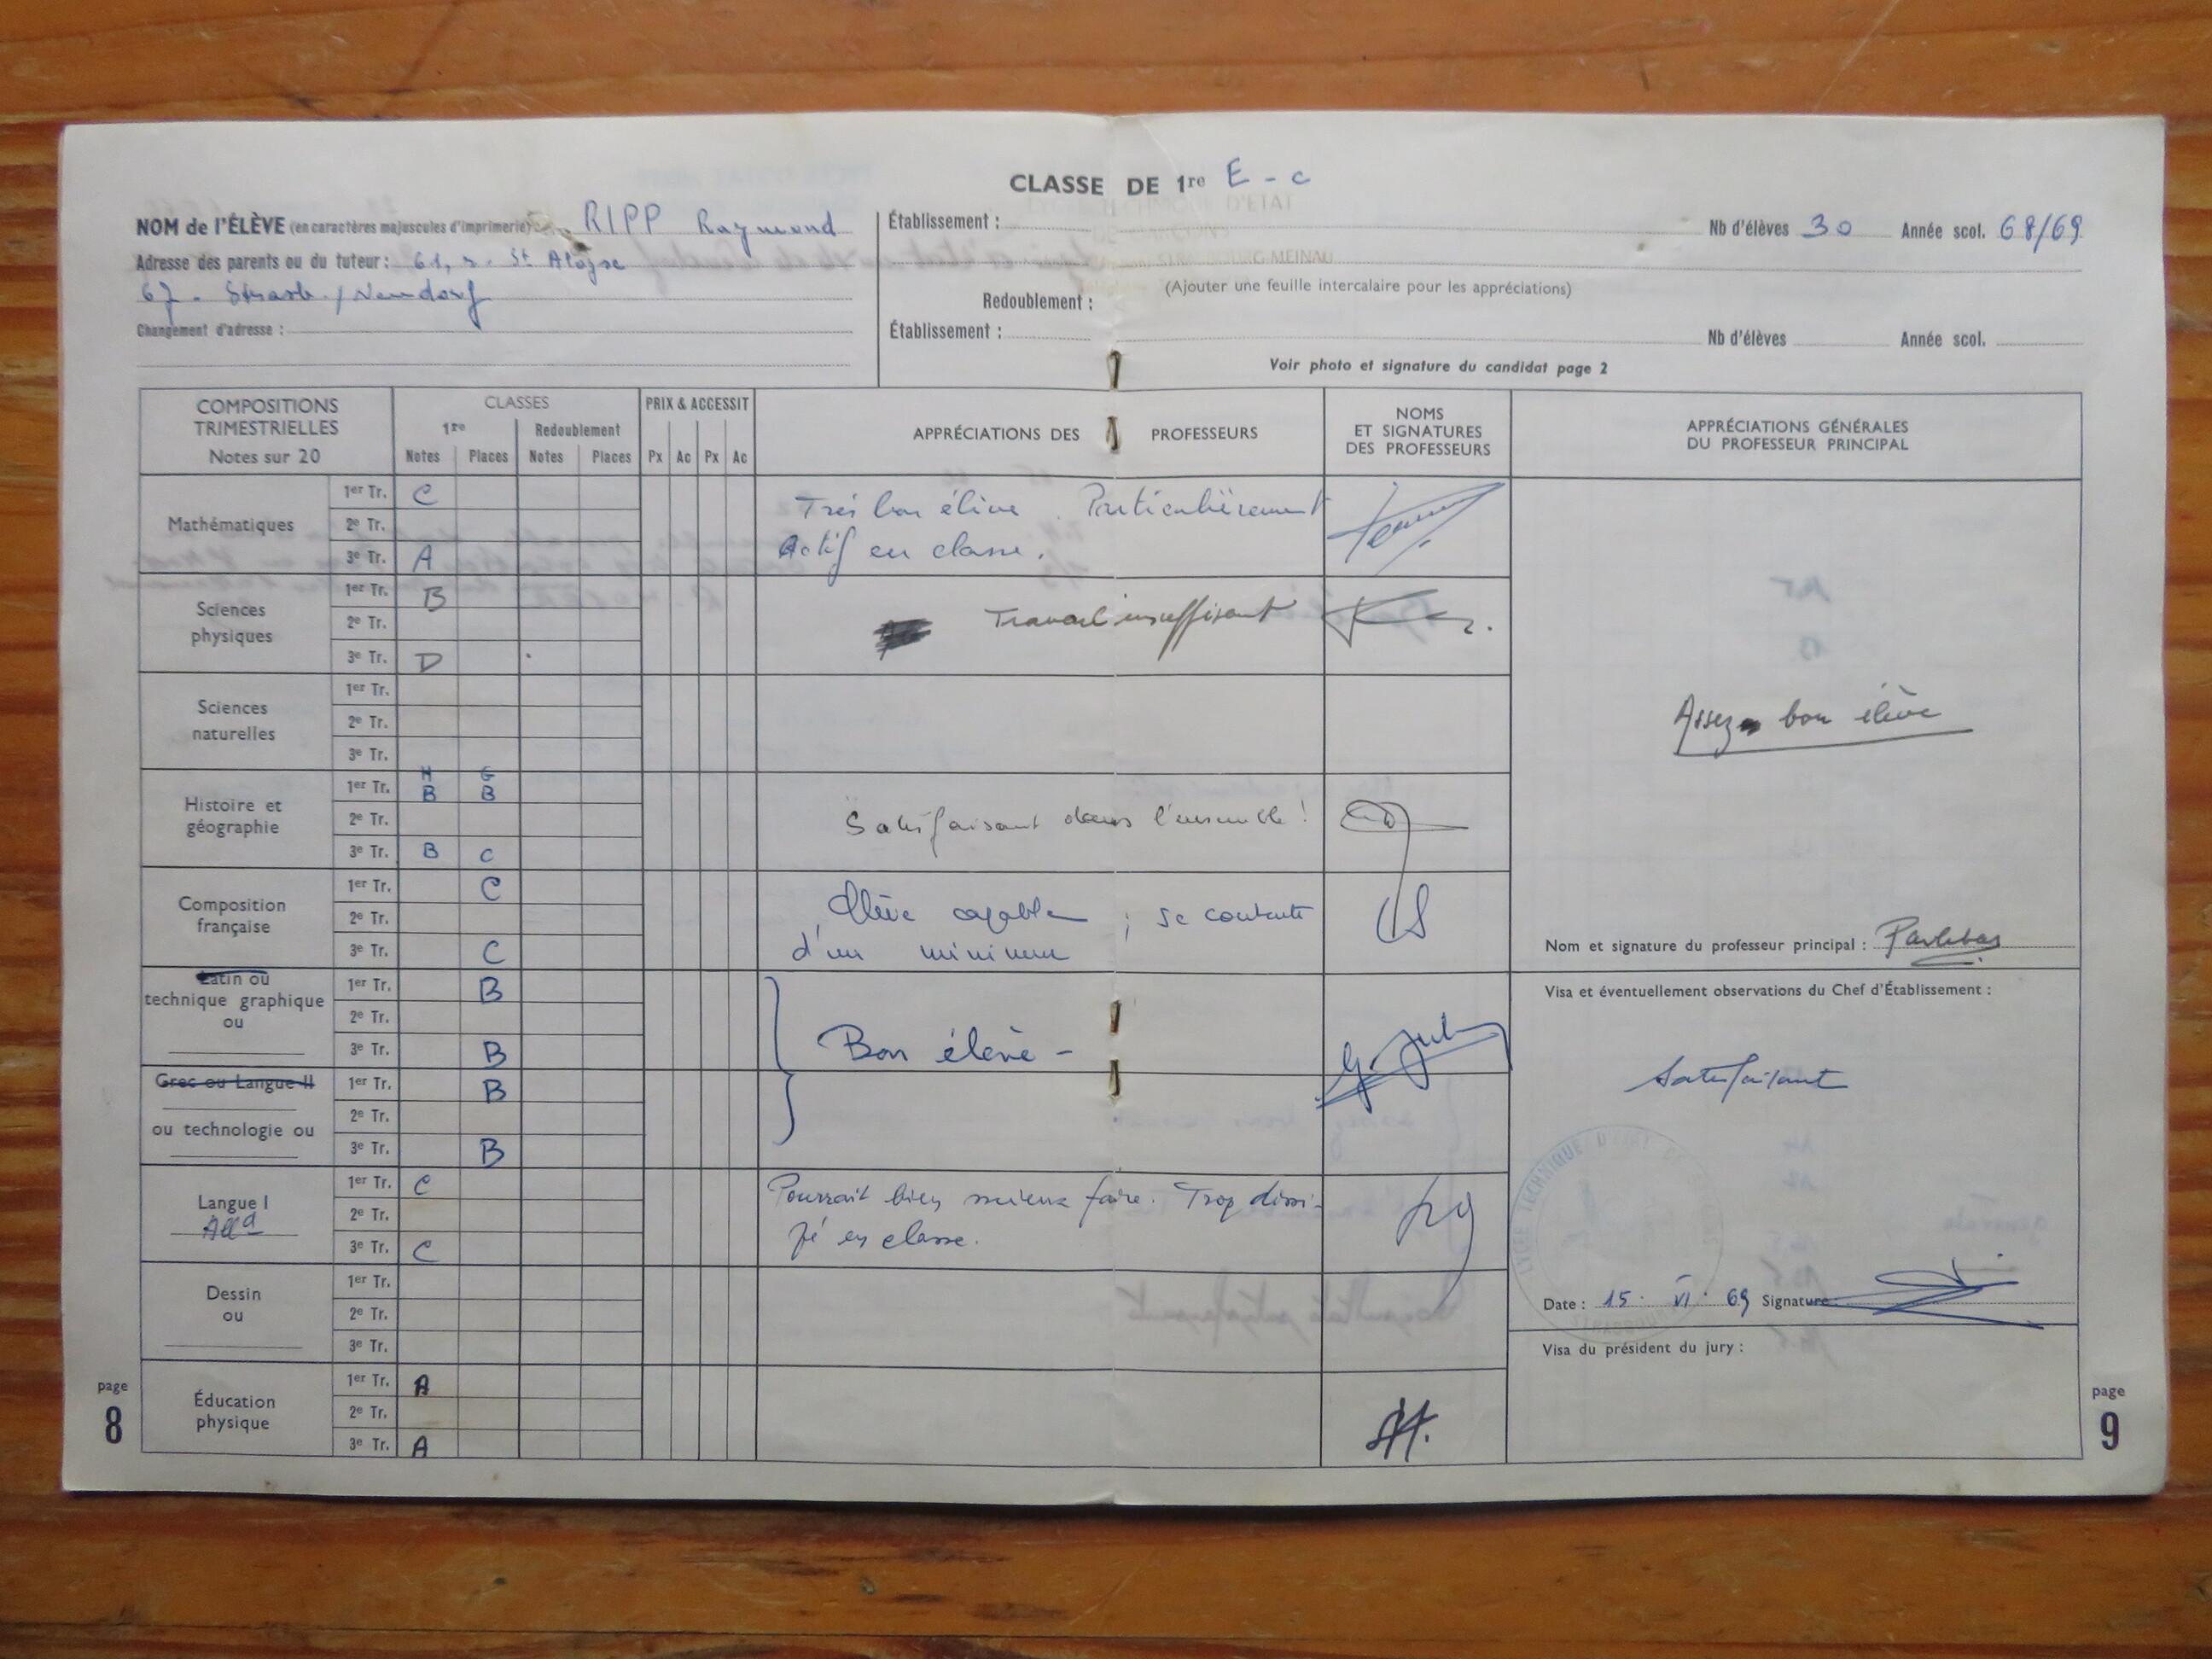 CLASSE DE 1re E - c
NOM de l'ÉLÈVE (en caractères majuscules d'imprimerie) RIPP Raymond
Adresse des parents ou du tuteur : 61, r. St Aloyse
67 - Strasb. / Neudorf
Changement d'adresse :
Établissement : LYCÉE TECHNIQUE D'ETAT
STRASBOURG-MEINAU
Nb d'élèves 30 Année scol. 68/69
(Ajouter une feuille intercalaire pour les appréciations)
Redoublement :
Établissement : Nb d'élèves Année scol.
Voir photo et signature du candidat page 2
COMPOSITIONS
TRIMESTRIELLES
Notes sur 20
CLASSES
1re Redoublement
Notes Places Notes Places
PRIX & ACCESSIT
Px Ac Px Ac
APPRÉCIATIONS DES PROFESSEURS
NOMS
ET SIGNATURES
DES PROFESSEURS
APPRÉCIATIONS GÉNÉRALES
DU PROFESSEUR PRINCIPAL
Mathématiques
1er Tr. C
2e Tr.
3e Tr. A
Très bon élève. Particulièrement
Actif en classe.
Sciences
physiques
1er Tr. B
2e Tr.
3e Tr. D
Travail insuffisant
Sciences
naturelles
1er Tr.
2e Tr.
3e Tr.
Histoire et
géographie
H G
1er Tr. B B
2e Tr.
3e Tr. B C
Satisfaisant dans l'ensemble !
Composition
française
1er Tr. C
2e Tr.
3e Tr. C
Elève capable ; se contente
d'un minimum
Latin ou
technique graphique
ou
1er Tr. B
2e Tr.
3e Tr. B
Bon élève -
G. Jul
Grec ou Langue II
ou technologie ou
1er Tr. B
2e Tr.
3e Tr. B
Langue I
Alld
1er Tr. C
2e Tr.
3e Tr. C
Pourrait bien mieux faire. Trop dissi-
pé en classe.
Dessin
ou
1er Tr.
2e Tr.
3e Tr.
Éducation
physique
1er Tr. A
2e Tr.
3e Tr. A
Assez bon élève
Nom et signature du professeur principal : Parlebas
Visa et éventuellement observations du Chef d'Établissement :
Satisfaisant
LYCÉE TECHNIQUE D'ETAT
STRASBOURG
Date : 15. VI. 69 Signature
Visa du président du jury :
page
8
page
9